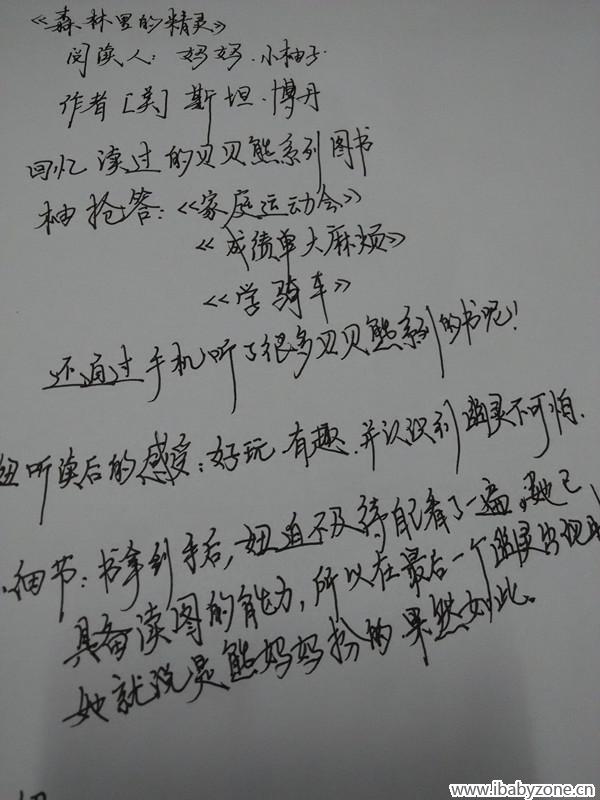 《森林里的精灵》
阅读人：妈妈.小柚子
作者[美]斯坦.博丹
回忆读过的贝贝熊系列图书
柚抢答：《家庭运动会》
《成绩单大麻烦》
《学骑车》
还通过手机听了很多贝贝熊系列的书呢！
妞听读后的感受：好玩.有趣.并认识到幽灵不可怕.
细节：书拿到手后，妞迫不及待自己看了一遍，她已
具备读图的能力，所以在最后一个幽灵出现时
她就说是熊妈妈扮的果然如此。
www.ibabyzone.cn